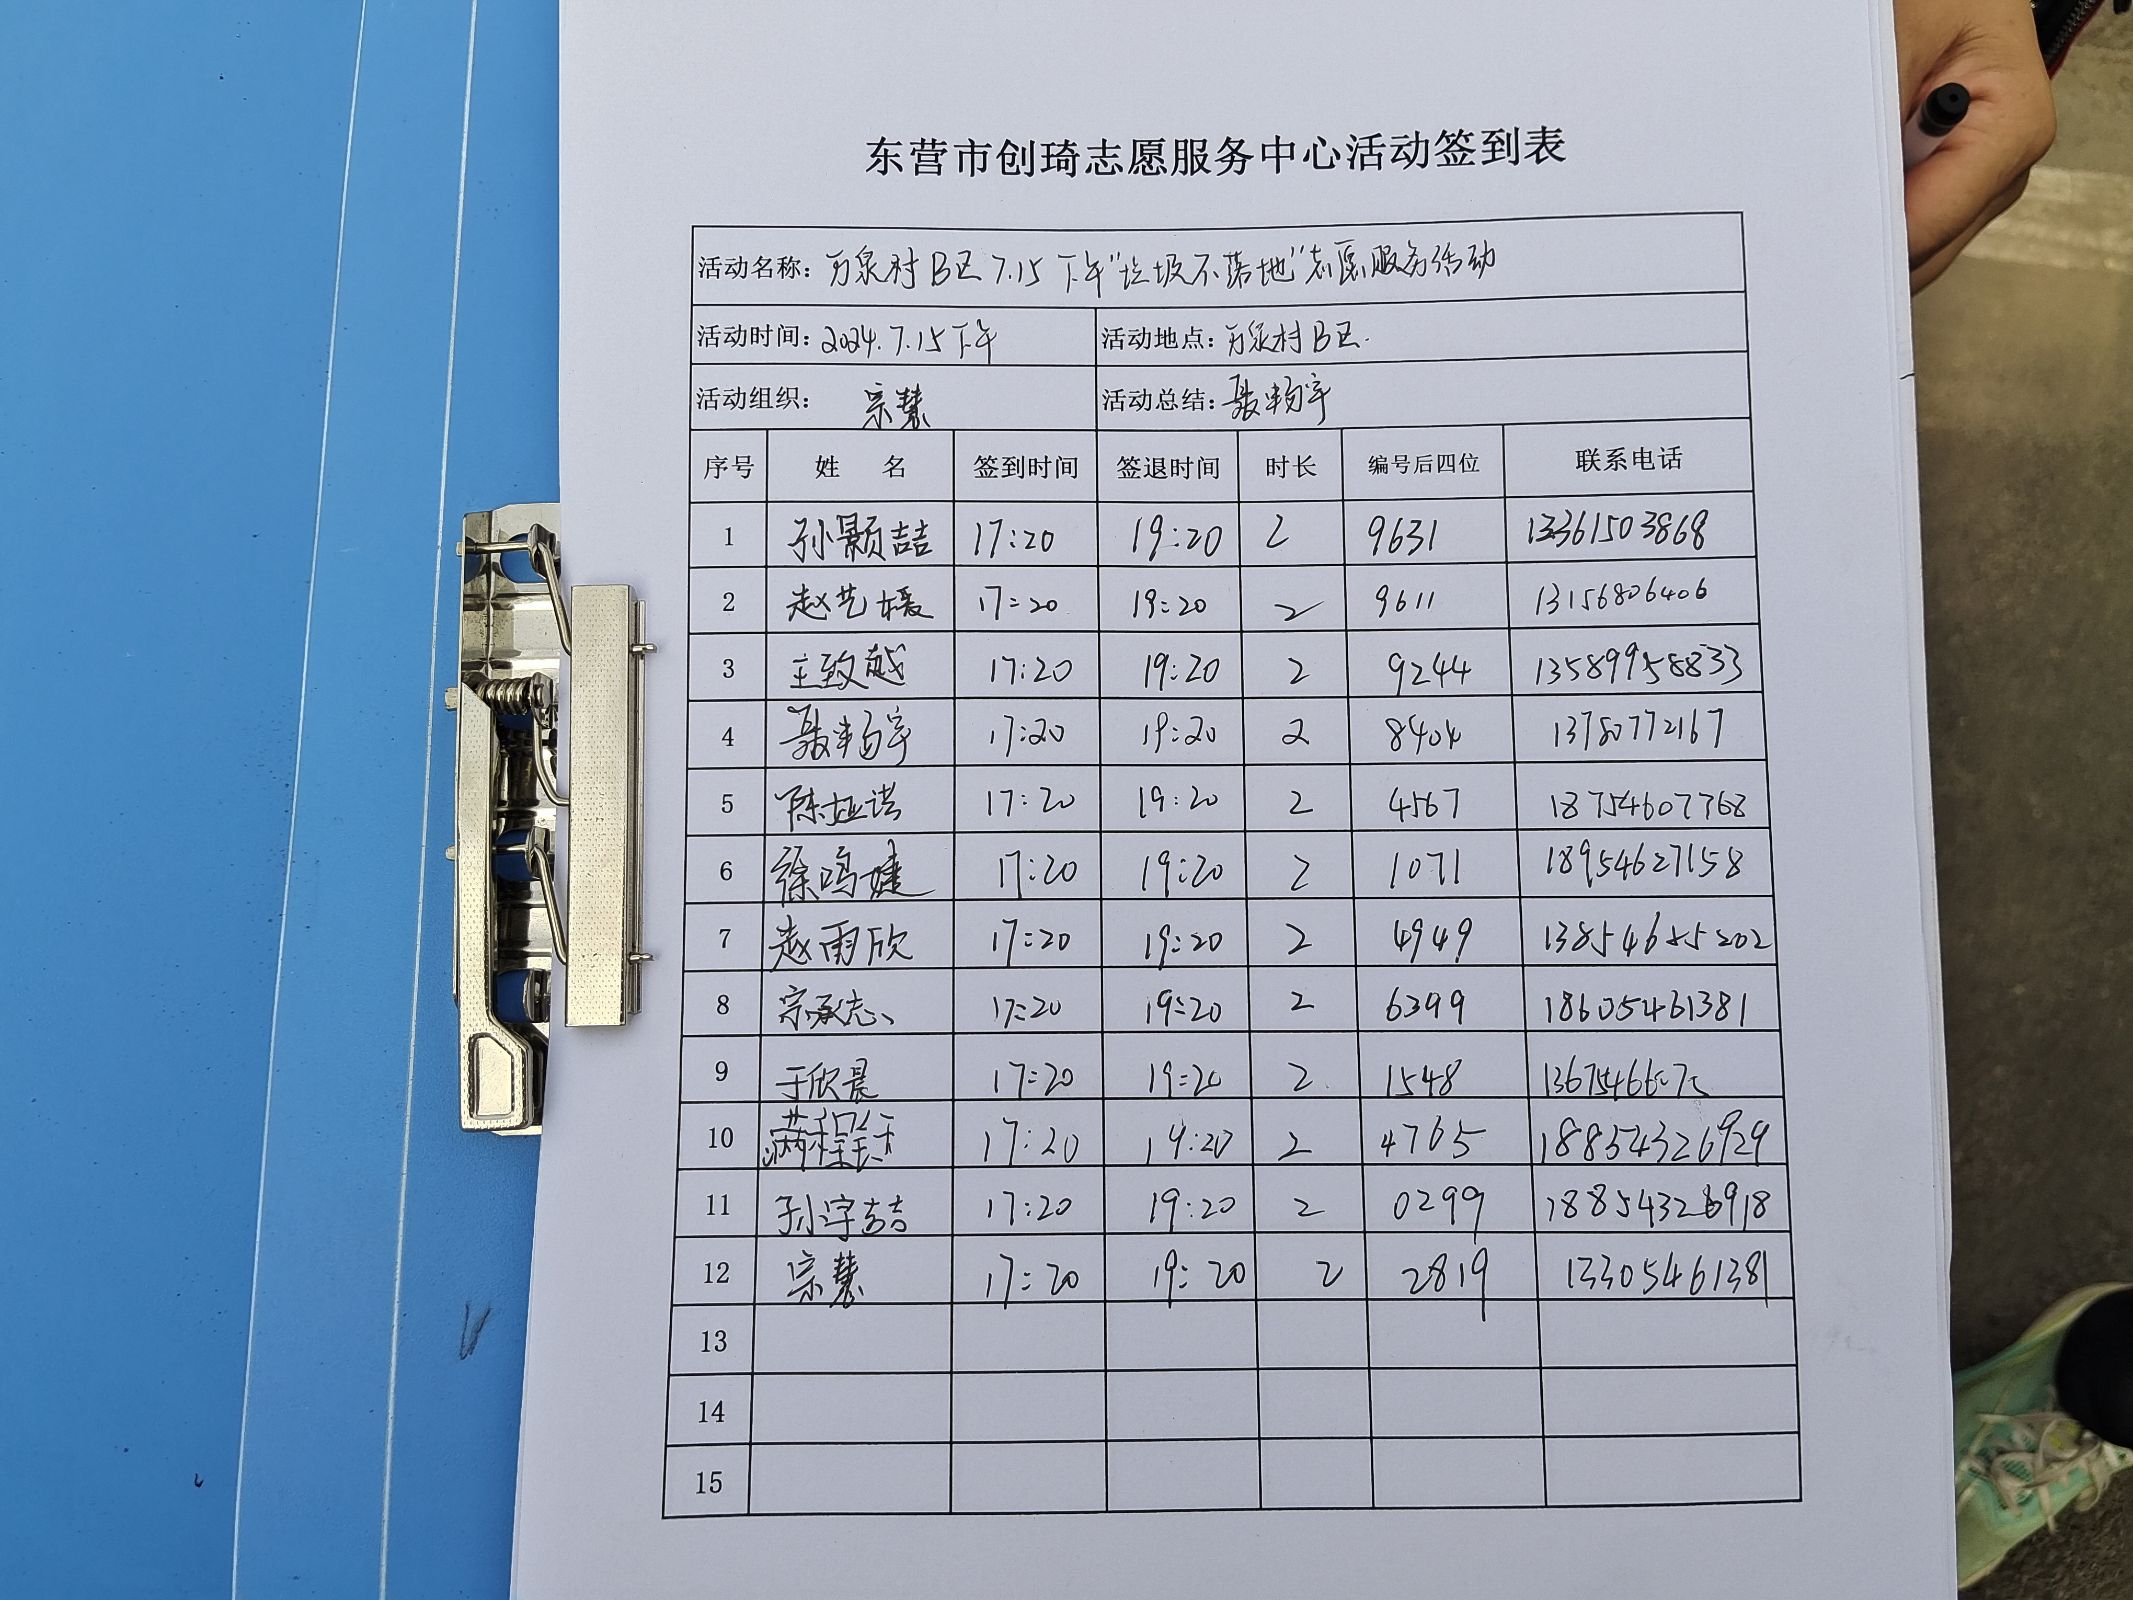 东营市创琦志愿服务中心活动签到表
活动名称：万泉村B区7.15下午“垃圾不落地”志愿服务活动
活动时间：2024.7.15下午 活动地点：万泉村B区.
活动组织：宗慧 活动总结：聂畅宇
序号 姓名 签到时间 签退时间 时长 编号后四位 联系电话
1 孙颢喆 17:20 19:20 2 9631 13361503868
2 赵艺媛 17:20 19:20 2 9611 13156806406
3 王致越 17:20 19:20 2 9244 13589958833
4 聂畅宇 17:20 19:20 2 8404 13780772167
5 陈垭诺 17:20 19:20 2 4567 18754607768
6 徐鸣婕 17:20 19:20 2 1071 18954627158
7 赵雨欣 17:20 19:20 2 4949 13854655202
8 宗承志 17:20 19:20 2 6399 18605461381
9 于欣晨 17:20 19:20 2 1548
10 17:20 19:20 2 4765 18854326929
11 孙字喆 17:20 19:20 2 0299 18854326918
12 宗慧 17:20 19:20 2 2819 13305461381
13
14
15